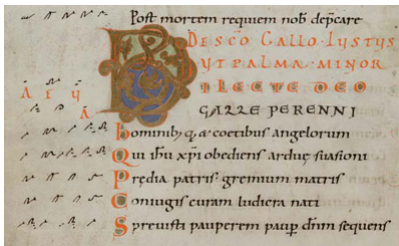 Post mortem requiem nob dep̄care
DE SC̄O GALLO · IUSTUS
UT PALMA · MINOR
DILECTE DEO
GALLE PERENNI
Hominib; q; & coetibus angelorum
Qui ihu xp̄i obediens arduę suasioni
Prędia patris; gremium matris
Coniugis curam ludicra nati
Sprevisti pauperem paup̄ dn̄m sequens